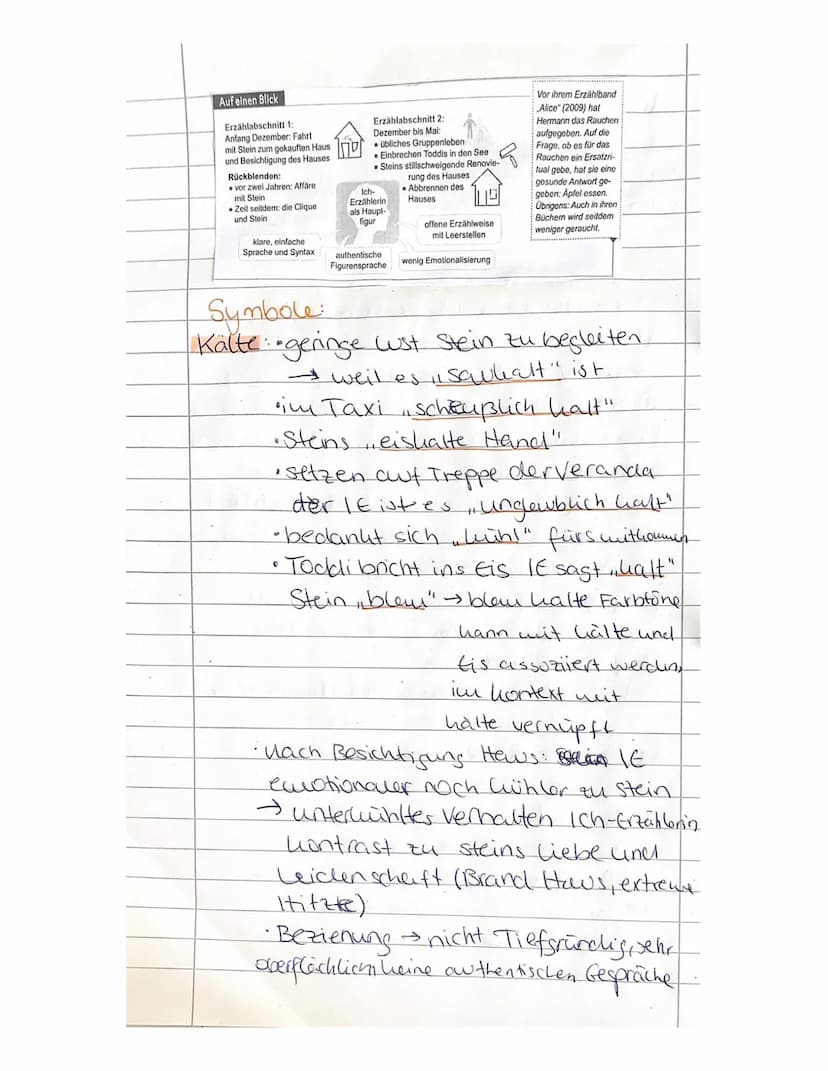 Auf einen Blick
Erzählabschnitt 1:
Anfang Dezember: Fahrt
mit Stein zum gekauften Haus
und Besichtigung des Hauses
Rückblenden:
• vor zwei Jahren: Affäre
mit Stein
• Zeit seitdem: die Clique
und Stein
Erzählabschnitt 2:
Dezember bis Mai:
• übliches Gruppenleben
• Einbrechen Toddis in den See
• Steins stillschweigende Renovie-
rung des Hauses
• Abbrennen des
Hauses
Ich-
Erzählerin
als Haupt-
figur
offene Erzählweise
mit Leerstellen
klare, einfache
Sprache und Syntax
authentische
Figurensprache
wenig Emotionalisierung
Vor ihrem Erzählband
„Alice" (2009) hat
Hermann das Rauchen
aufgegeben. Auf die
Frage, ob es für das
Rauchen ein Ersatzri-
tual gebe, hat sie eine
gesunde Antwort ge-
geben: Äpfel essen.
Übrigens: Auch in ihren
Büchern wird seitdem
weniger geraucht.
Symbole:
Kälte: • geringe Lust Stein zu begleiten
→ weil es „saukalt" ist
• im Taxi „scheußlich kalt"
• Steins „eiskalte Hand"
• setzen auf Treppe der Veranda
der IE ist es „unglaublich kalt"
• bedankt sich „kühl" fürs mitkommen
• Toddi bricht ins Eis IE sagt „kalt"
Stein „blau" → blau kalte Farbtöne
kann mit kälte und
Eis assoziiert werden,
im Kontext mit
kälte vernüpft
• Nach Besichtigung Haus: IE
emotionaler noch kühler zu Stein
→ unterkühltes Verhalten Ich-Erzählerin
Kontrast zu Steins Liebe und
Leidenschaft (Brand Haus, extreme
Hitze)
• Bezienung → nicht Tiefgründig, sehr
oberflächlich keine authentischen Gespräche